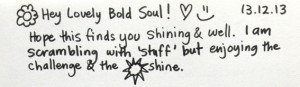 Hey Lovely Bold Soul! 13.12.13
Hope this finds you shining & well. I am
scrambling with 'stuff' but enjoying the
challenge & the shine.